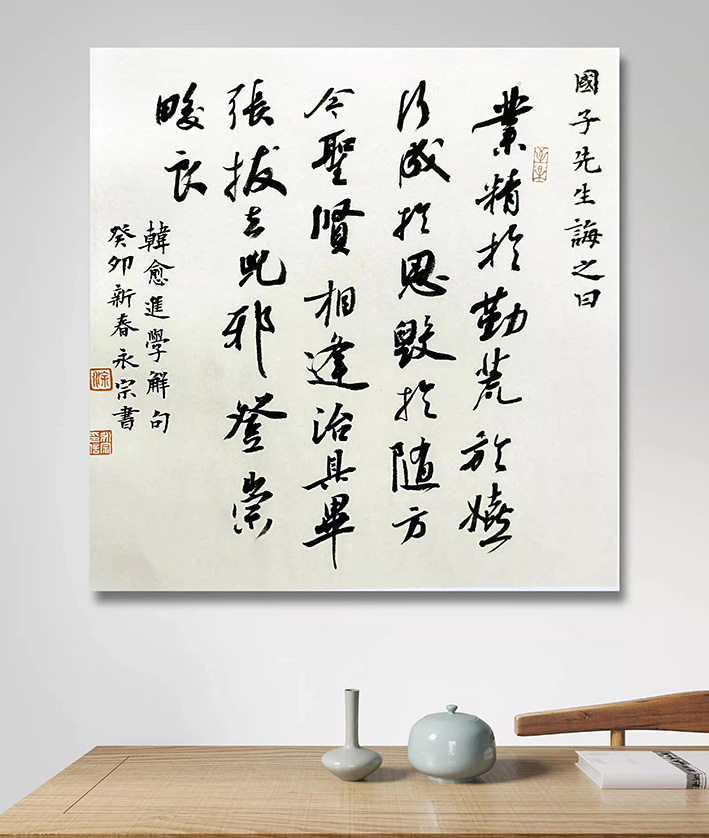 國子先生誨之曰
業精於勤荒於嬉
行成於思毀於随方
今聖賢相逢治具畢
張拔去兇邪登崇
畯良
韓愈進學解句
癸卯新春永宗書